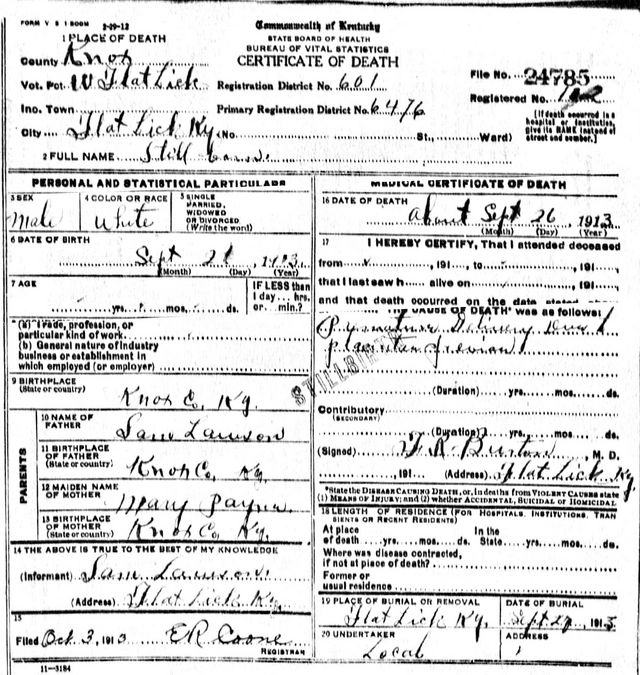 FORM V S 1 500M 2-19-12
Commonwealth of Kentucky
STATE BOARD OF HEALTH
BUREAU OF VITAL STATISTICS
CERTIFICATE OF DEATH
1 PLACE OF DEATH
County Knox
Vot. Pct. W Flat Lick Registration District No. 601
File No. 24785
Registered No.
Inc. Town Primary Registration District No. 6476
City Flat Lick Ky. (No St., Ward)
[If death occurred in a hospital or institution, give its NAME instead of street and number.]
2 FULL NAME Still
PERSONAL AND STATISTICAL PARTICULARS
3 SEX Male
4 COLOR OR RACE White
5 SINGLE MARRIED, WIDOWED OR DIVORCED (Write the word)
6 DATE OF BIRTH
Sept , 1913
(Month) (Day) (Year)
7 AGE
yrs. mos. ds.
IF LESS than 1 day hrs. or min.?
*(a) Trade, profession, or particular kind of work
(b) General nature of industry business or establishment in which employed (or employer)
9 BIRTHPLACE (State or country)
Knox Co, Ky.
PARENTS
10 NAME OF FATHER
Sam Lawson
11 BIRTHPLACE OF FATHER (State or country)
Knox Co, Ky.
12 MAIDEN NAME OF MOTHER
Mary Payne
13 BIRTHPLACE OF MOTHER (State or country)
Knox Co, Ky.
14 THE ABOVE IS TRUE TO THE BEST OF MY KNOWLEDGE
(Informant) Sam Lawson
(Address) Flat Lick Ky.
15
Filed Oct 3, 1913 REGISTRAR
11-3184
MEDICAL CERTIFICATE OF DEATH
16 DATE OF DEATH
About Sept 26, 1913
(Month) (Day) (Year)
17 I HEREBY CERTIFY, That I attended deceased
from , 191 , to , 191 ,
that I last saw h alive on , 191 ,
and that death occurred on the date stated
THE CAUSE OF DEATH* was as follows:
Delivery
STILLBIRTH
(Duration) yrs. mos. ds.
Contributory
(SECONDARY)
(Duration) yrs. mos. ds.
(Signed) M. D.
, 191 (Address) Flat Lick Ky
*State the DISEASE CAUSING DEATH, or, in deaths from VIOLENT CAUSES state (1) MEANS OF INJURY; and (2) whether ACCIDENTAL, SUICIDAL OR HOMICIDAL
18 LENGTH OF RESIDENCE (FOR HOSPITALS, INSTITUTIONS, TRANSIENTS OR RECENT RESIDENTS)
At place of death yrs. mos. ds. In the State yrs. mos. ds.
Where was disease contracted, if not at place of death?
Former or usual residence
19 PLACE OF BURIAL OR REMOVAL
Flat Lick Ky.
DATE OF BURIAL
Sept , 1913
20 UNDERTAKER
Local
ADDRESS